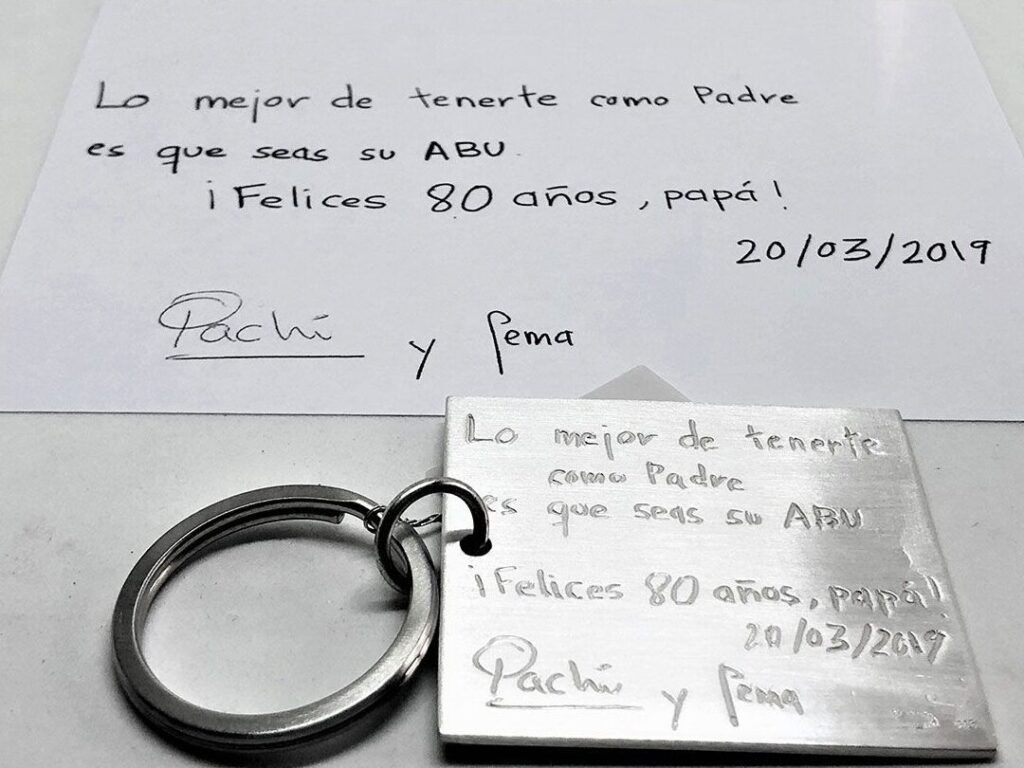 Lo mejor de tenerte como Padre
es que seas su ABU.
¡Felices 80 años, papá!
20/03/2019
Pachi y Pema
Lo mejor de tenerte
como Padre
es que seas su ABU
¡Felices 80 años, papá!
20/03/2019
Pachi y Pema